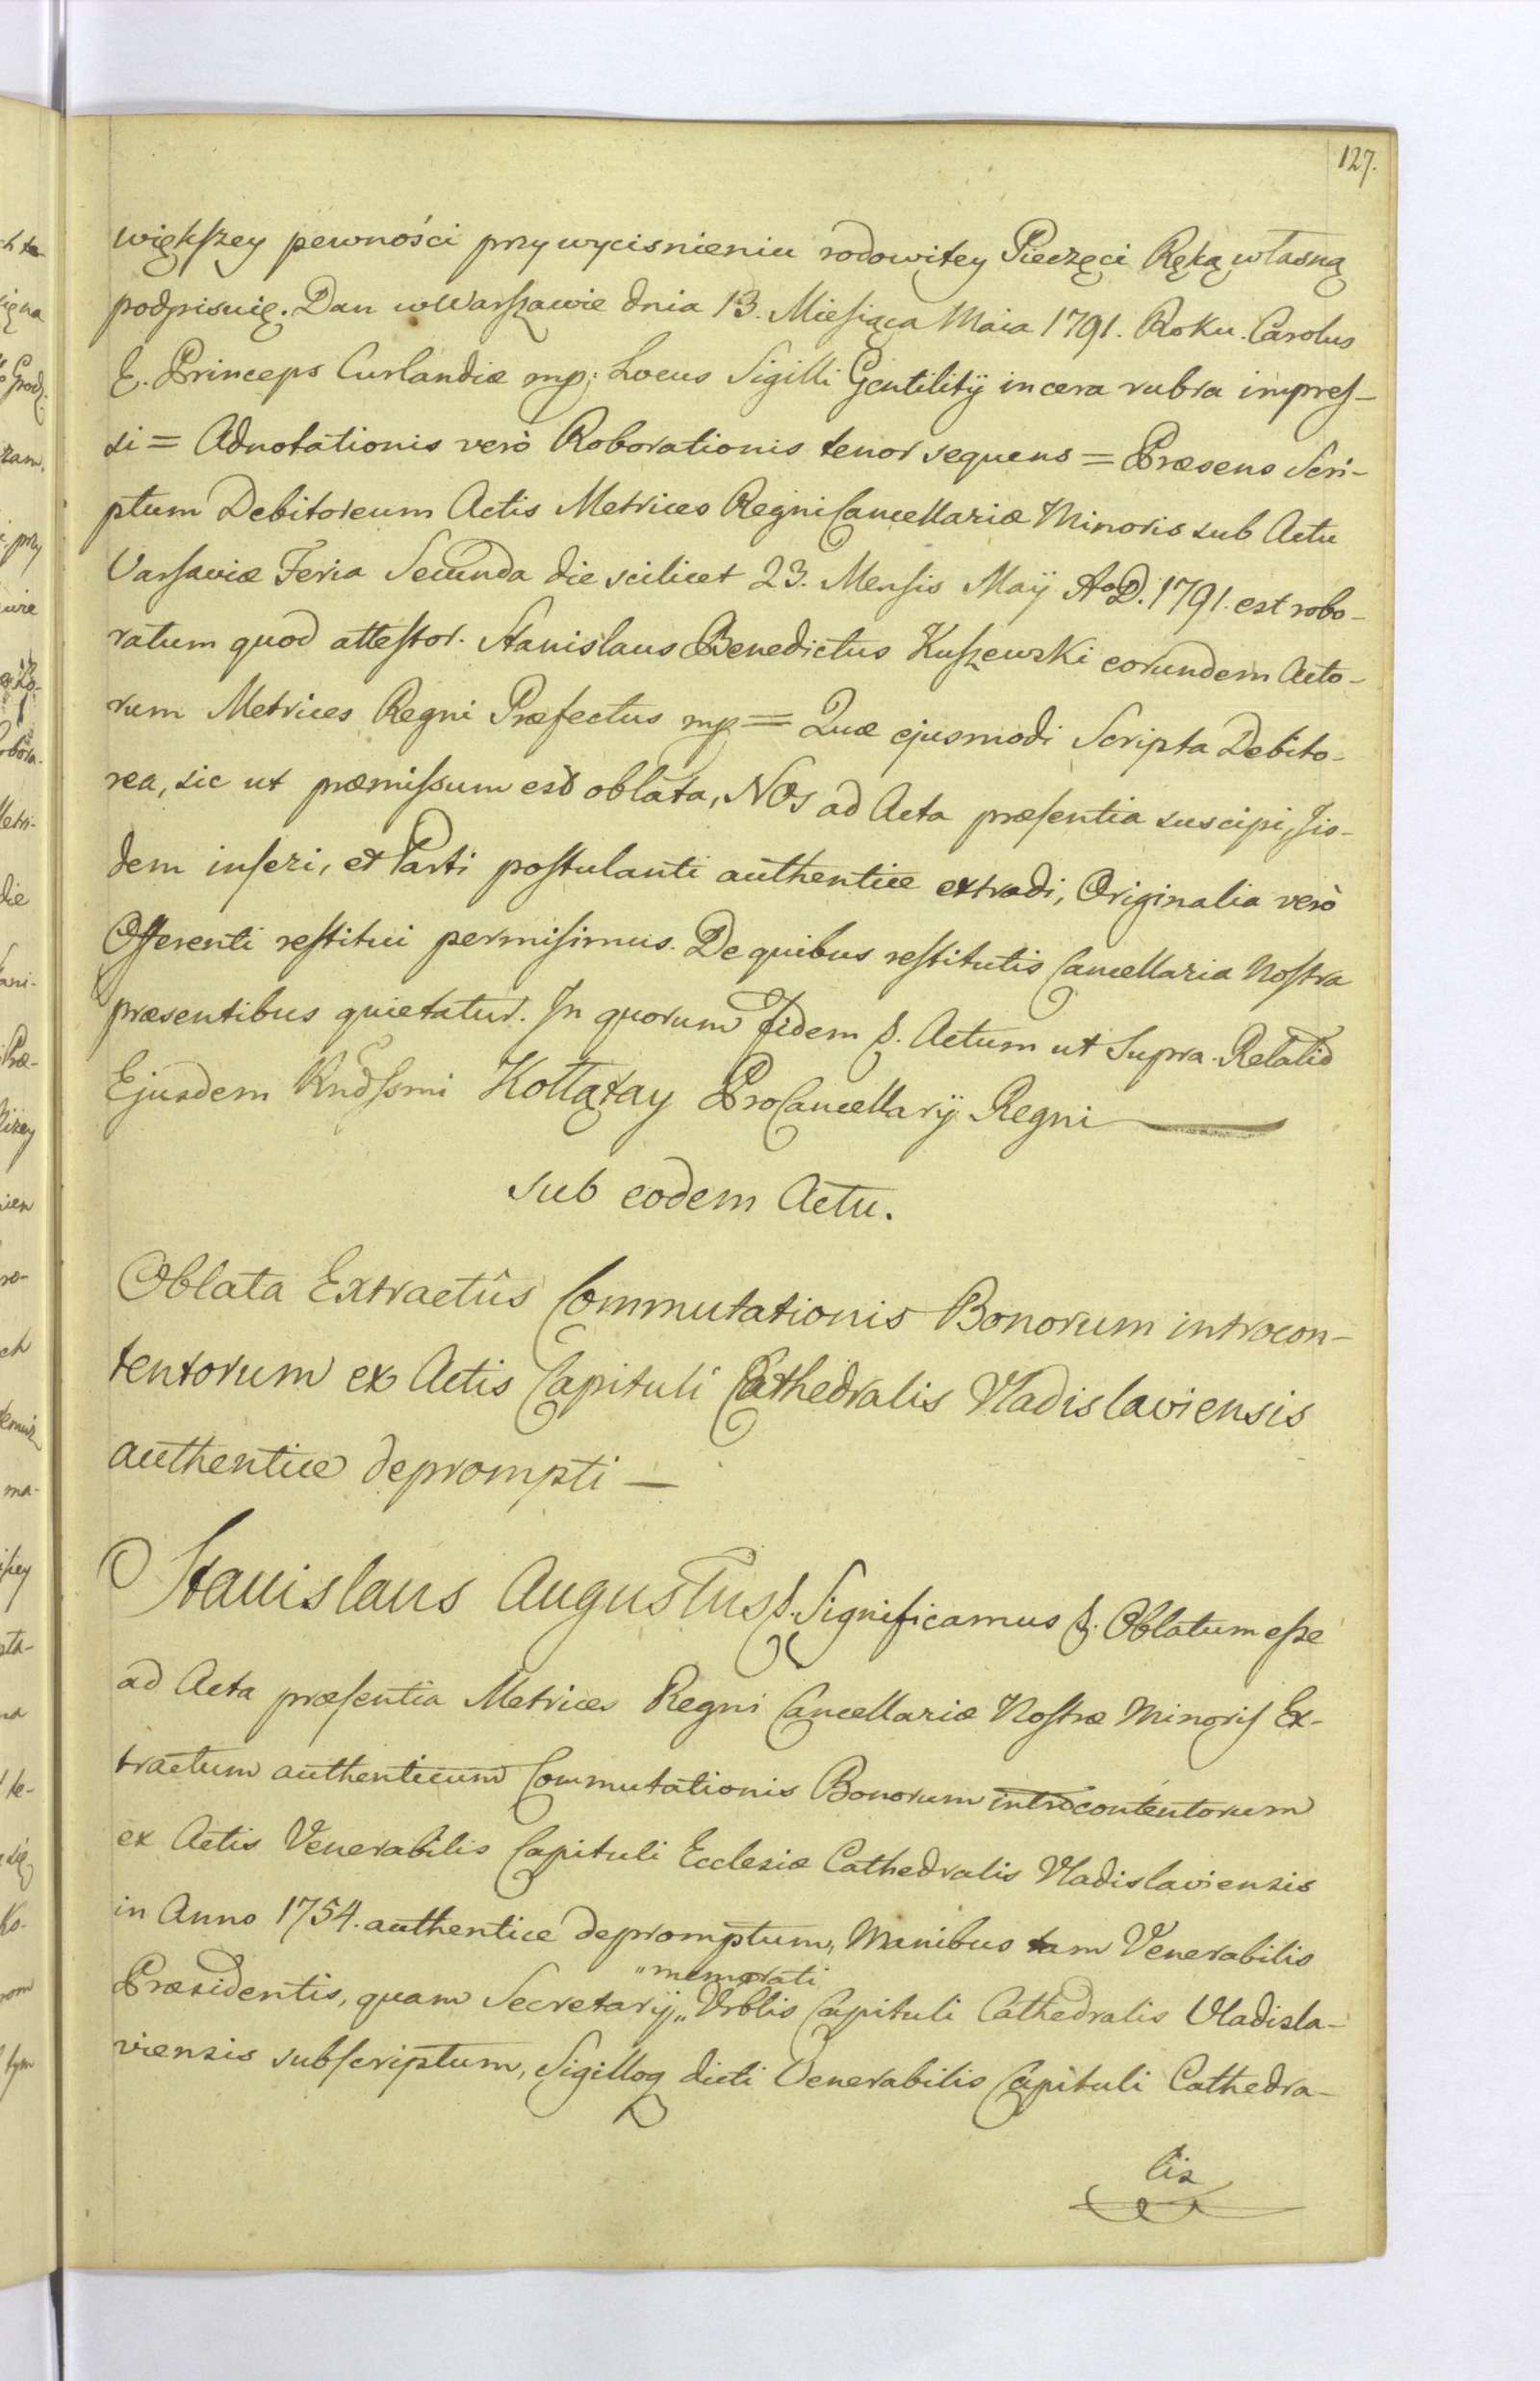 127.
więkſzey pewności przy wycisnieniu rodowitey Pieczęci Ręką własną
podpisuię. Dan w Warſzawie dnia 13. Mieſiąca Maia 1791. Roku. Carolus
E. Princeps Curlandiæ mp; Locus Sigilli Gentilitij in cera rubra impreſ-
si = Adnotationis verò Roborationis tenor sequens = Præsens Scri-
ptum Debitoreum Actis Metrices Regni Cancellariæ Minoris sub Actu
Varſaviæ Feria Secunda die scilicet 23. Menſis Maij A°D. 1791. est robo-
ratum quod atteſtor. Stanislaus Benedictus Kuſzewski eorundem Acto-
rum Metrices Regni Præfectus mp = Quæ ejusmodi Scripta Debito-
rea, sic ut præmiſsum est oblata, NOs ad Acta præſentia suscipi, Jis-
dem inſeri, et Parti poſtulanti authentice extradi, Originalia verò
Offerenti reſtitui permiſimus. De quibus reſtitutis Cancellaria Noſtra
præsentibus quietatur. In quorum fidem &. Actum ut Supra. Relatio
Ejusdem Rndſsmi Kołłątay ProCancellarij Regni
sub eodem Actu.
Oblata Extractûs Commutationis Bonorum introcon-
tentorum ex Actis Capituli Cathedralis Vladislaviensis
authentice deprompti —
Stanislaus Augustus &. Significamus &. Oblatum eſse
ad Acta præſentia Metrices Regni Cancellariæ Noſtræ Minoriſ Ex-
tractum authenticum Commutationis Bonorum introcontentorum
ex Actis Venerabilis Capituli Ecclesiæ Cathedralis Vladislaviensis
in Anno 1754. authentice depromptum, Manibus tam Venerabilis
"memorati
Præsidentis, quam Secretarij „ Vrblis Capituli Cathedralis Vladisla-
viensis subſcriptum, Sigilloq dicti Venerabilis Capituli Cathedra-
lis